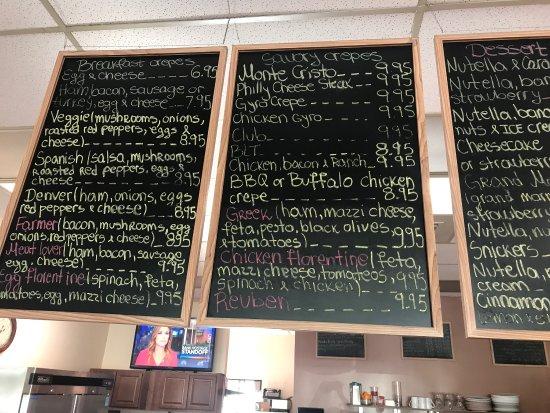 Breakfast crepes
Egg & cheese 6.95
Ham, bacon, sausage or
turkey, egg & cheese 7.95
Veggie (mushrooms, onions,
roasted red peppers, eggs &
cheese) 8.95
Spanish (salsa, mushrooms,
Roasted red peppers, eggs &
cheese 8.95
Denver (ham, onions, eggs
red peppers & cheese) 8.95
Farmer (bacon, mushrooms, egg
onions, red peppers & cheese) 9.95
Meat lover (ham, bacon, sausage
egg & cheese) 9.95
Egg florentine (spinach, feta,
tomatoes, egg, mazzi cheese) 9.95
Savory crepes
Monte Cristo 9.95
Philly Cheese Steak 9.95
Gyro Crepe 9.95
Chicken Gyro 9.95
Club 9.95
BLT 8.95
Chicken, bacon & Ranch 9.95
BBQ or Buffalo chicken
crepe 8.95
Greek (ham, mazzi cheese,
feta, pesto, black olives,
& tomatoes) 9.95
Chicken florentine (feta,
mazzi cheese, tomatoes,
spinach & chicken) 9.95
Reuben 9.95
Dessert
Nutella & Cara
Nutella, bana
strawberry
Nutella, bana
nuts & ice cre
Cheesecake
or strawberr
Grand Ma
(grand mar
strawberry
Nutella, ba
nuts
Snickers
Nutella, ban
cream
Cinnamon
STANDOFF